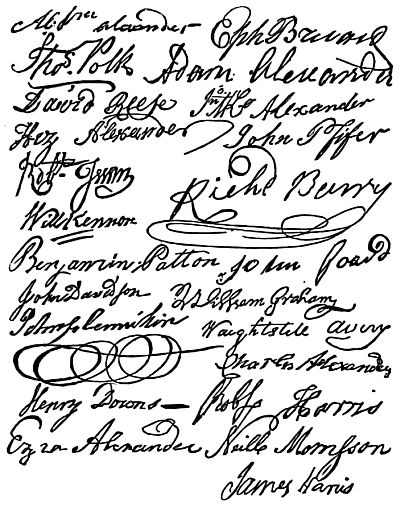 Alexander Eph Brevard
Thos. Polk Adam Alexander
David Reese Jno. McK. Alexander
Hez Alexander John Pfifer
Robt. Irwin
Richd Barry
Will Kennon
Benjamin Patton John Foard
John Davidson William Graham
John Flennikin Waightstill Avery
Charles Alexander
Henry Downs — Robt Harris
Ezra Alexander Neill Morrison
James Harris